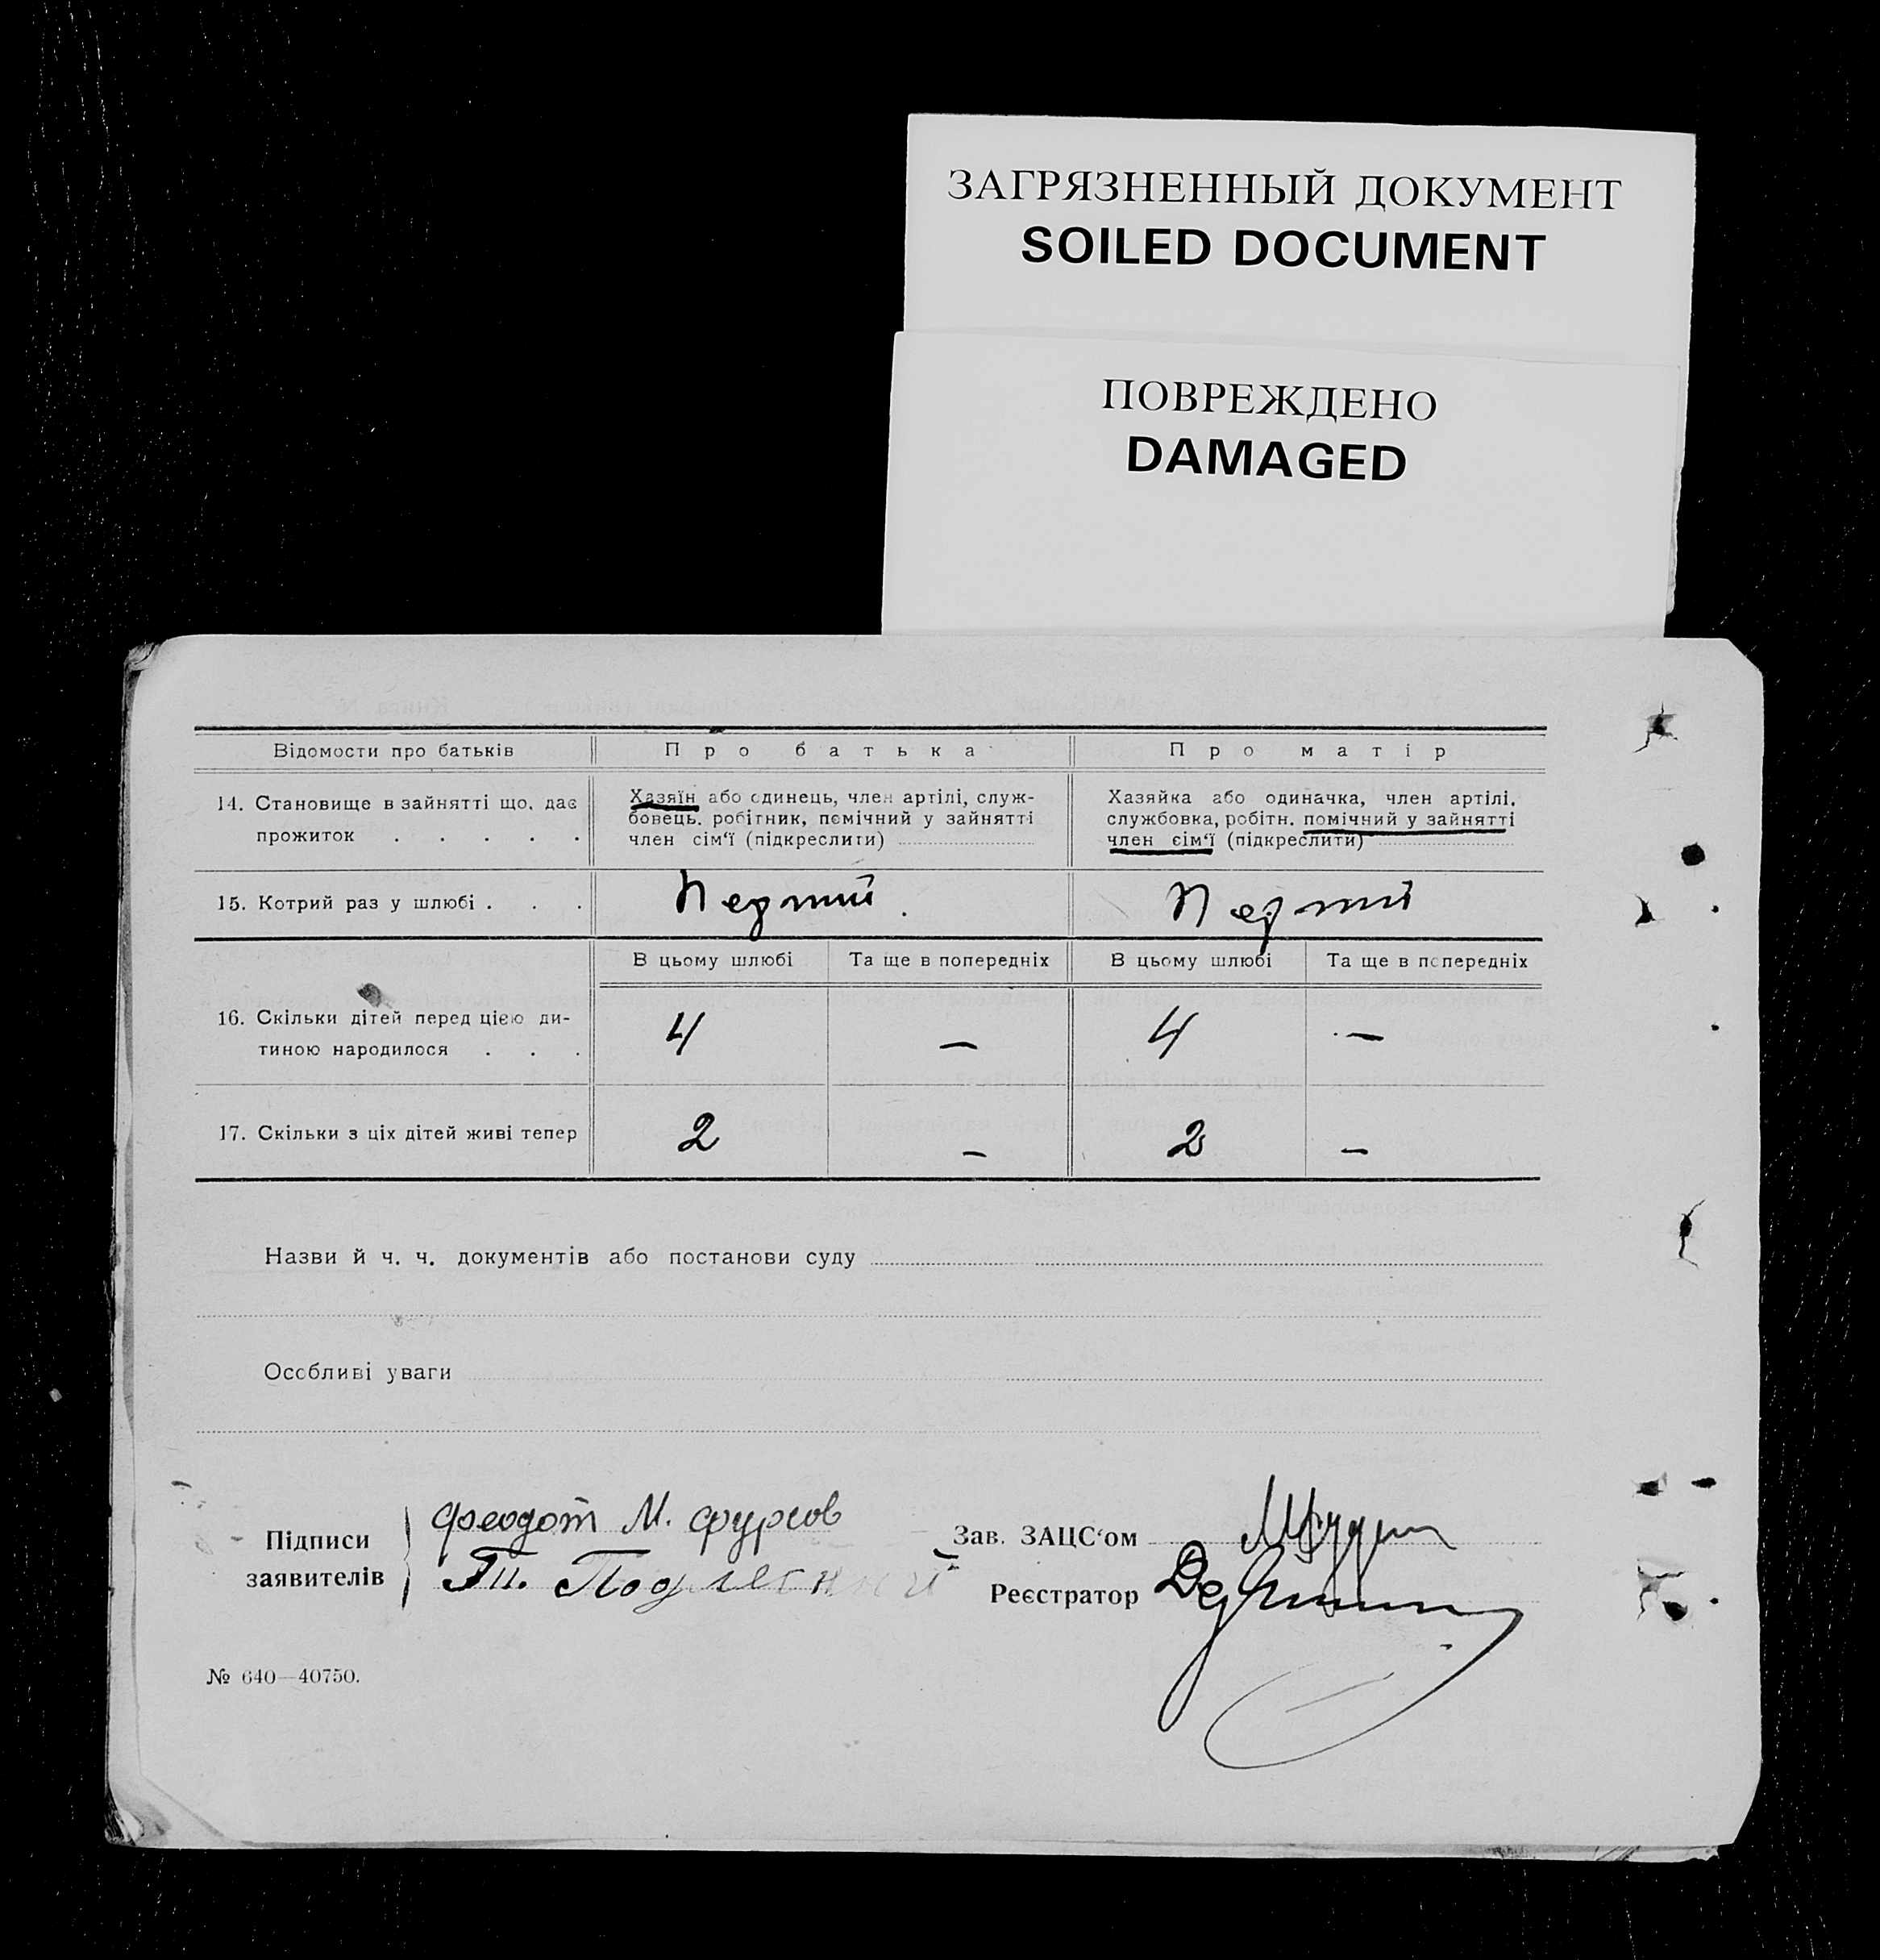 ЗАГРЯЗНЕННЫЙ ДОКУМЕНТ
SOILED DOCUMENT
ПОВРЕЖДЕНО
DAMAGED
Відомости про батьків
Про батька
Про матір
14. Становище в зайнятті що, дає
прожиток . . . . .
Хазяїн або одинець, член артілі, служ-
бовець, робітник, помічний у зайнятті
член сім'ї (підкреслити)
Хазяйка або одиначка, член артілі,
службовка, робітн. помічний у зайнятті
член сім'ї (підкреслити)
15. Котрий раз у шлюбі . . .
Перший
Перший
В цьому шлюбі
Та ще в попередніх
В цьому шлюбі
Та ще в попередніх
16. Скільки дітей перед цією ди-
тиною народилося . . .
4
—
4
—
17. Скільки з ціх дітей живі тепер
2
—
2
—
Назви й ч. ч. документів або постанови суду
Особливі уваги
Підписи
заявителів
Феодот М. Фурсов
Зав. ЗАЦС'ом
Реєстратор
№ 640—40750.